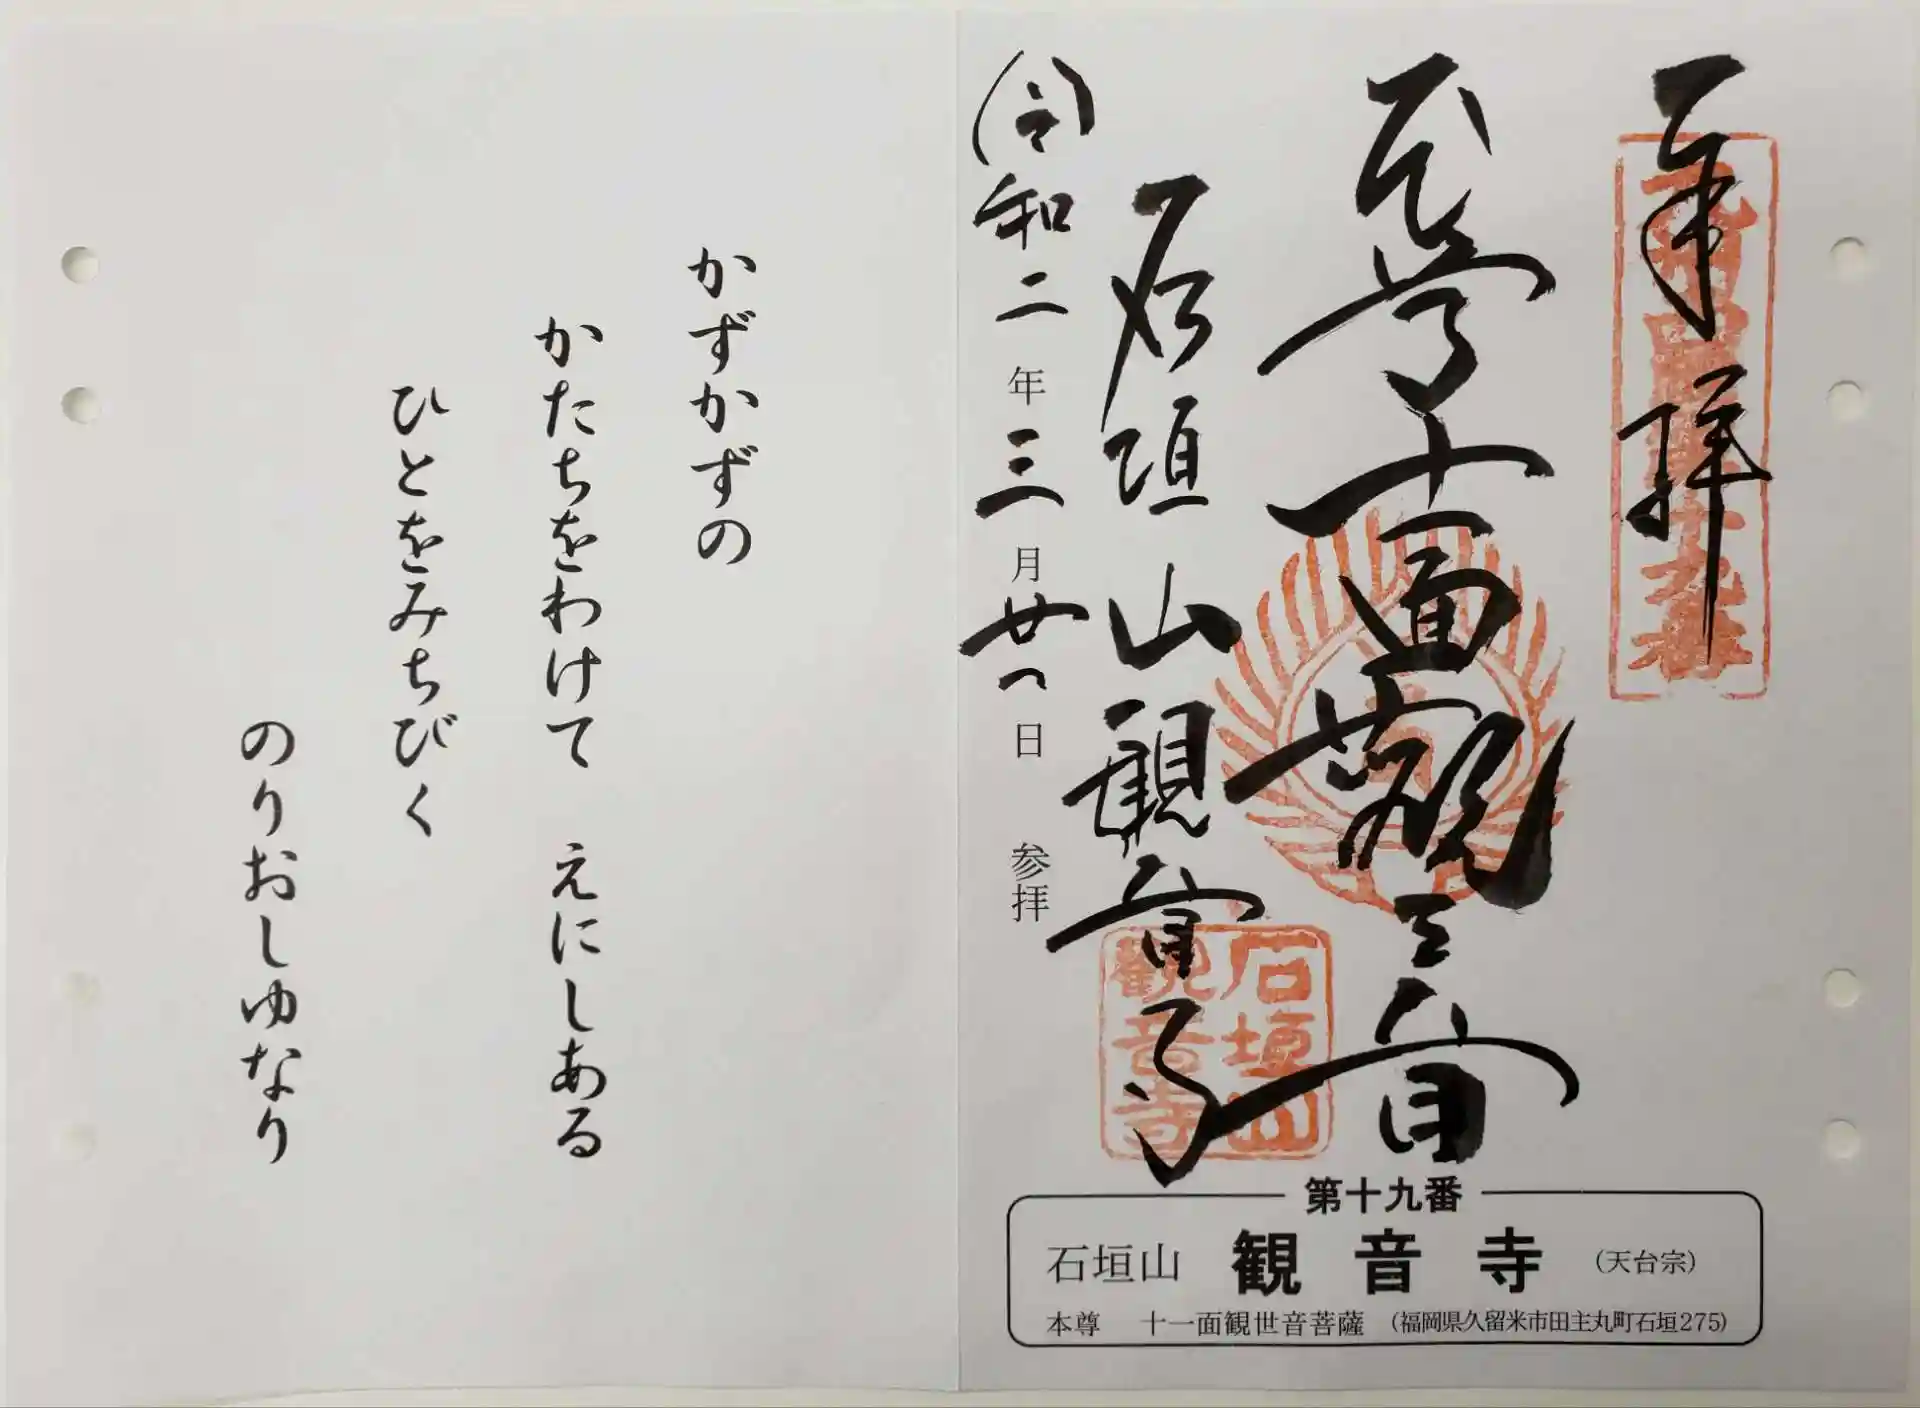 奉拝
九州四国霊場十九番
本尊十一面観世音
石垣山観音寺
石垣山
観音寺
令和二年三月廿一日 参拝
第十九番
石垣山 観音寺 (天台宗)
本尊 十一面観世音菩薩 (福岡県久留米市田主丸町石垣275)
かずかずの
かたちをわけて えにしある
ひとをみちびく
のりおしゆなり